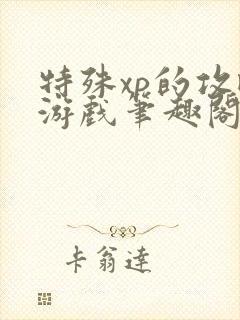 特殊xp的攻
游戏筆趣閣
卡翁達